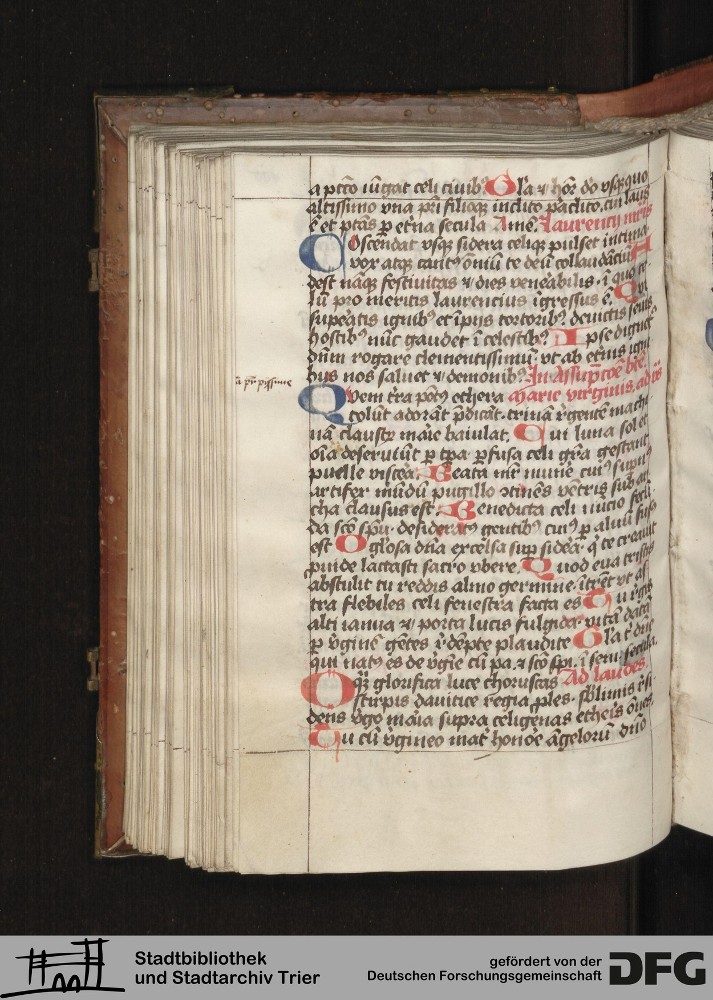 a pcto iūgat celi ciuib⁹ Gl'a ⁊ hōr dō vsq̄quo
altissimo vna pri filioq̨ inclito paclito cui laus
ē et ptās p et'na secula Amē. Laurency mris
Coscendat vsq̨ sidera celiq̨ pulset intima
vox atq̨ cant⁹ oīm te deū collaudāciū A
dest nāq̨ festiuitas ⁊ dies ven'abilis ī quo ce
lū pro meritis laurencius īgressus ē. Qui
sup'atis ignib⁹ et īpijs tortorib⁹ deuictis
hostib⁹ nūc gaudet ī celestib⁹ Ipse dignet'
dn̄m rogare clementissimū vt ab et'nis igni
bus nos saluet ⁊ demonib⁹ In Assūpcōe btē
Marie virginis ad
Quem t'ra pōt⁹ ethera
colūt adorāt p̄dicāt trinā r'gentē machi
nā claustr̄ marie baiulat. Cui luna sol et
oīa deseruiūt p tp̄a pfusa celi gr̄a gestant
puelle viscera. Beata mr̄ mun'e cui⁹ supn⁹
artifex mūdū pugillo ↄtinēs vētris sub ar
cha clausus est. Benedicta celi nūcio fecū
da scō spū. desiderat⁹ gentib⁹ cui⁹ p aluū fus⁹
est O gl'osa dn̄a excelsa sup sid'a q̨ te creauit
puide lactasti sacro vbere. Quod eua tristis
abstulit tu reddis almo germine. ītrēt vt as
tra flebiles celi fenestra facta es Tu r'gis
alti ianua ⁊ porta lucis fulgida vitā datā
p v'ginē gētes r'dēpte plaudite Gl'a t' dn̄e
qui nat⁹ es de v'gīe cū pa. ⁊ scō spū. ī semp. secula.
Ad laudes.
O q̨ glorifica luce choruscas
stirpis dauitice regia ples. sb̄limis r'si
dens v'go maria supra celigenas eth'is oēs
Tu cū v'gineo mat' honōe āgelorū dn̄o
a pr̄ pijssime
Stadtbibliothek
und Stadtarchiv Trier
gefördert von der
Deutschen Forschungsgemeinschaft
DFG